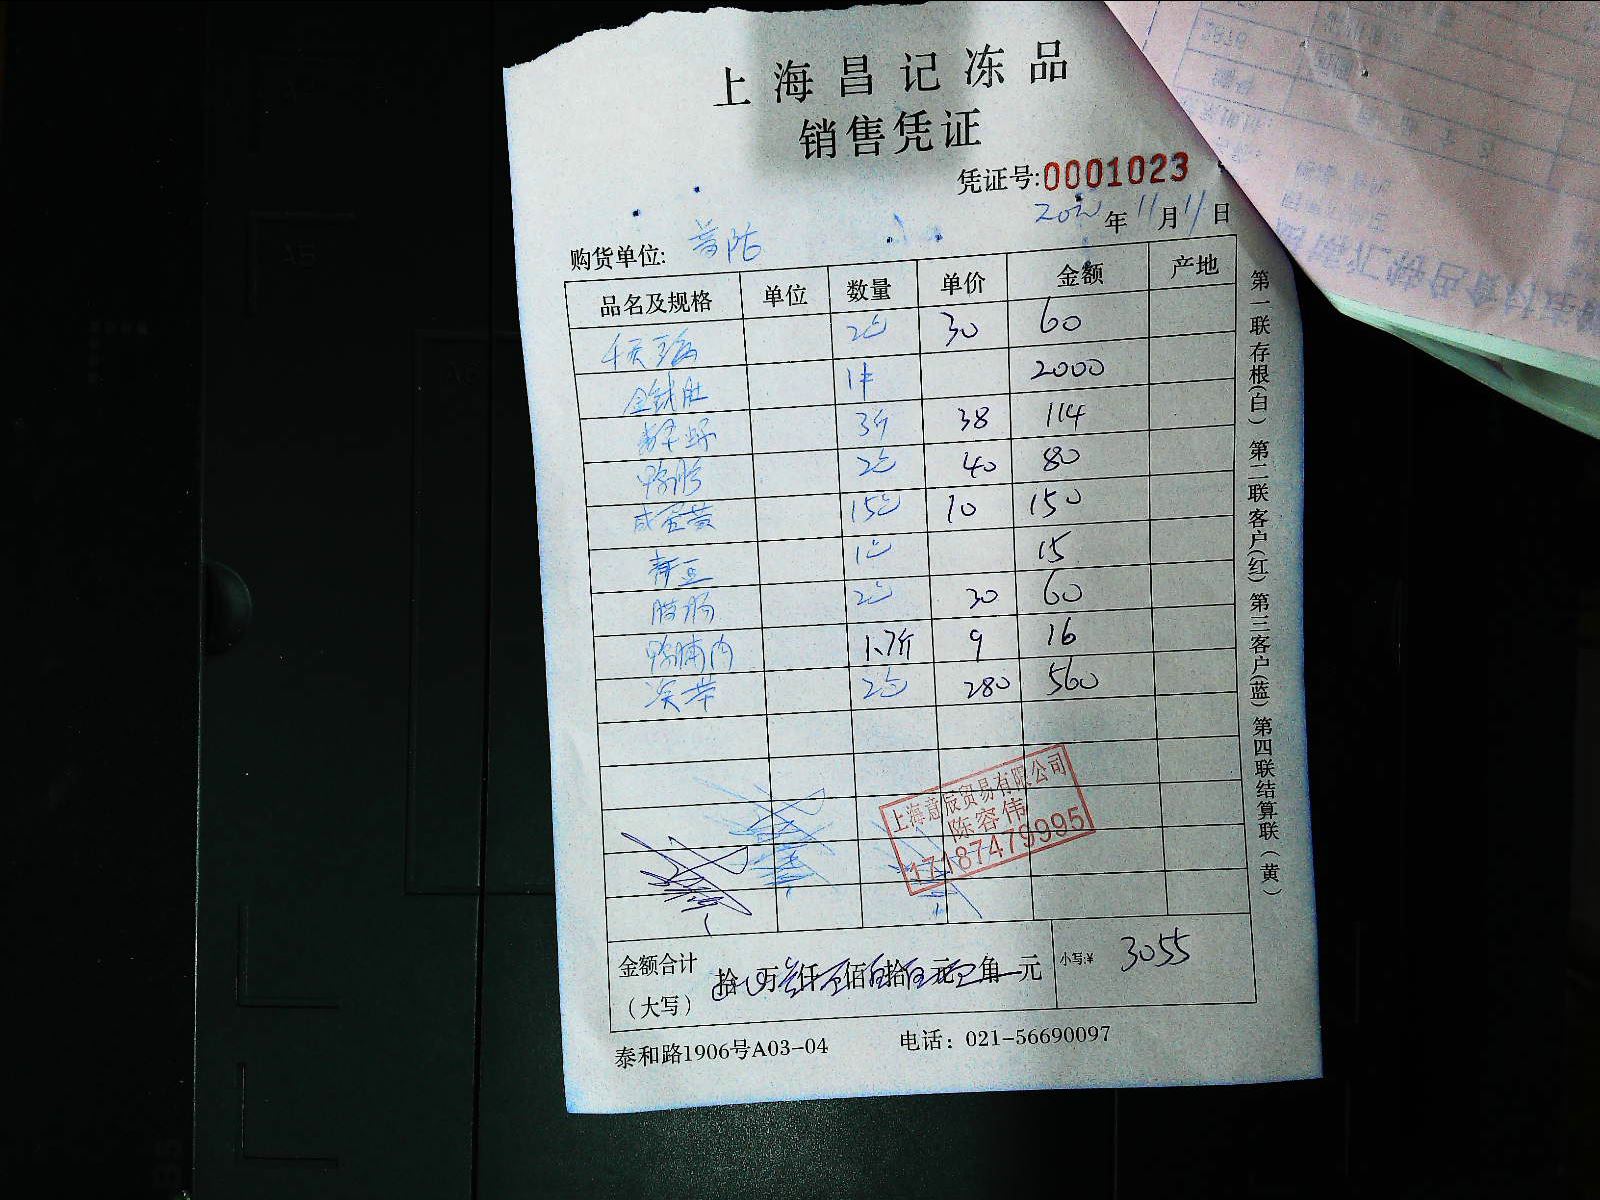 上海昌记冻品
销售凭证
凭证号:0001023
年 11月11日
购货单位: 普陀
品名及规格 单位 数量 单价 金额 产地
2包 30 60
金钱肚 1件 2000
3斤 38 114
2包 40 80
咸蛋黄 15包 10 150
青豆 1包 15
2包 30 60
鸭脯肉 1.7斤 9 16
2包 280 560
上海意辰贸易有限公司
陈容伟
17187479995
金额合计
(大写) 拾 万 仟 佰 拾 元 角 元 小写:¥ 3055
泰和路1906号A03-04 电话: 021-56690097
第一联存根(白) 第二联客户(红) 第三客户(蓝) 第四联结算联(黄)